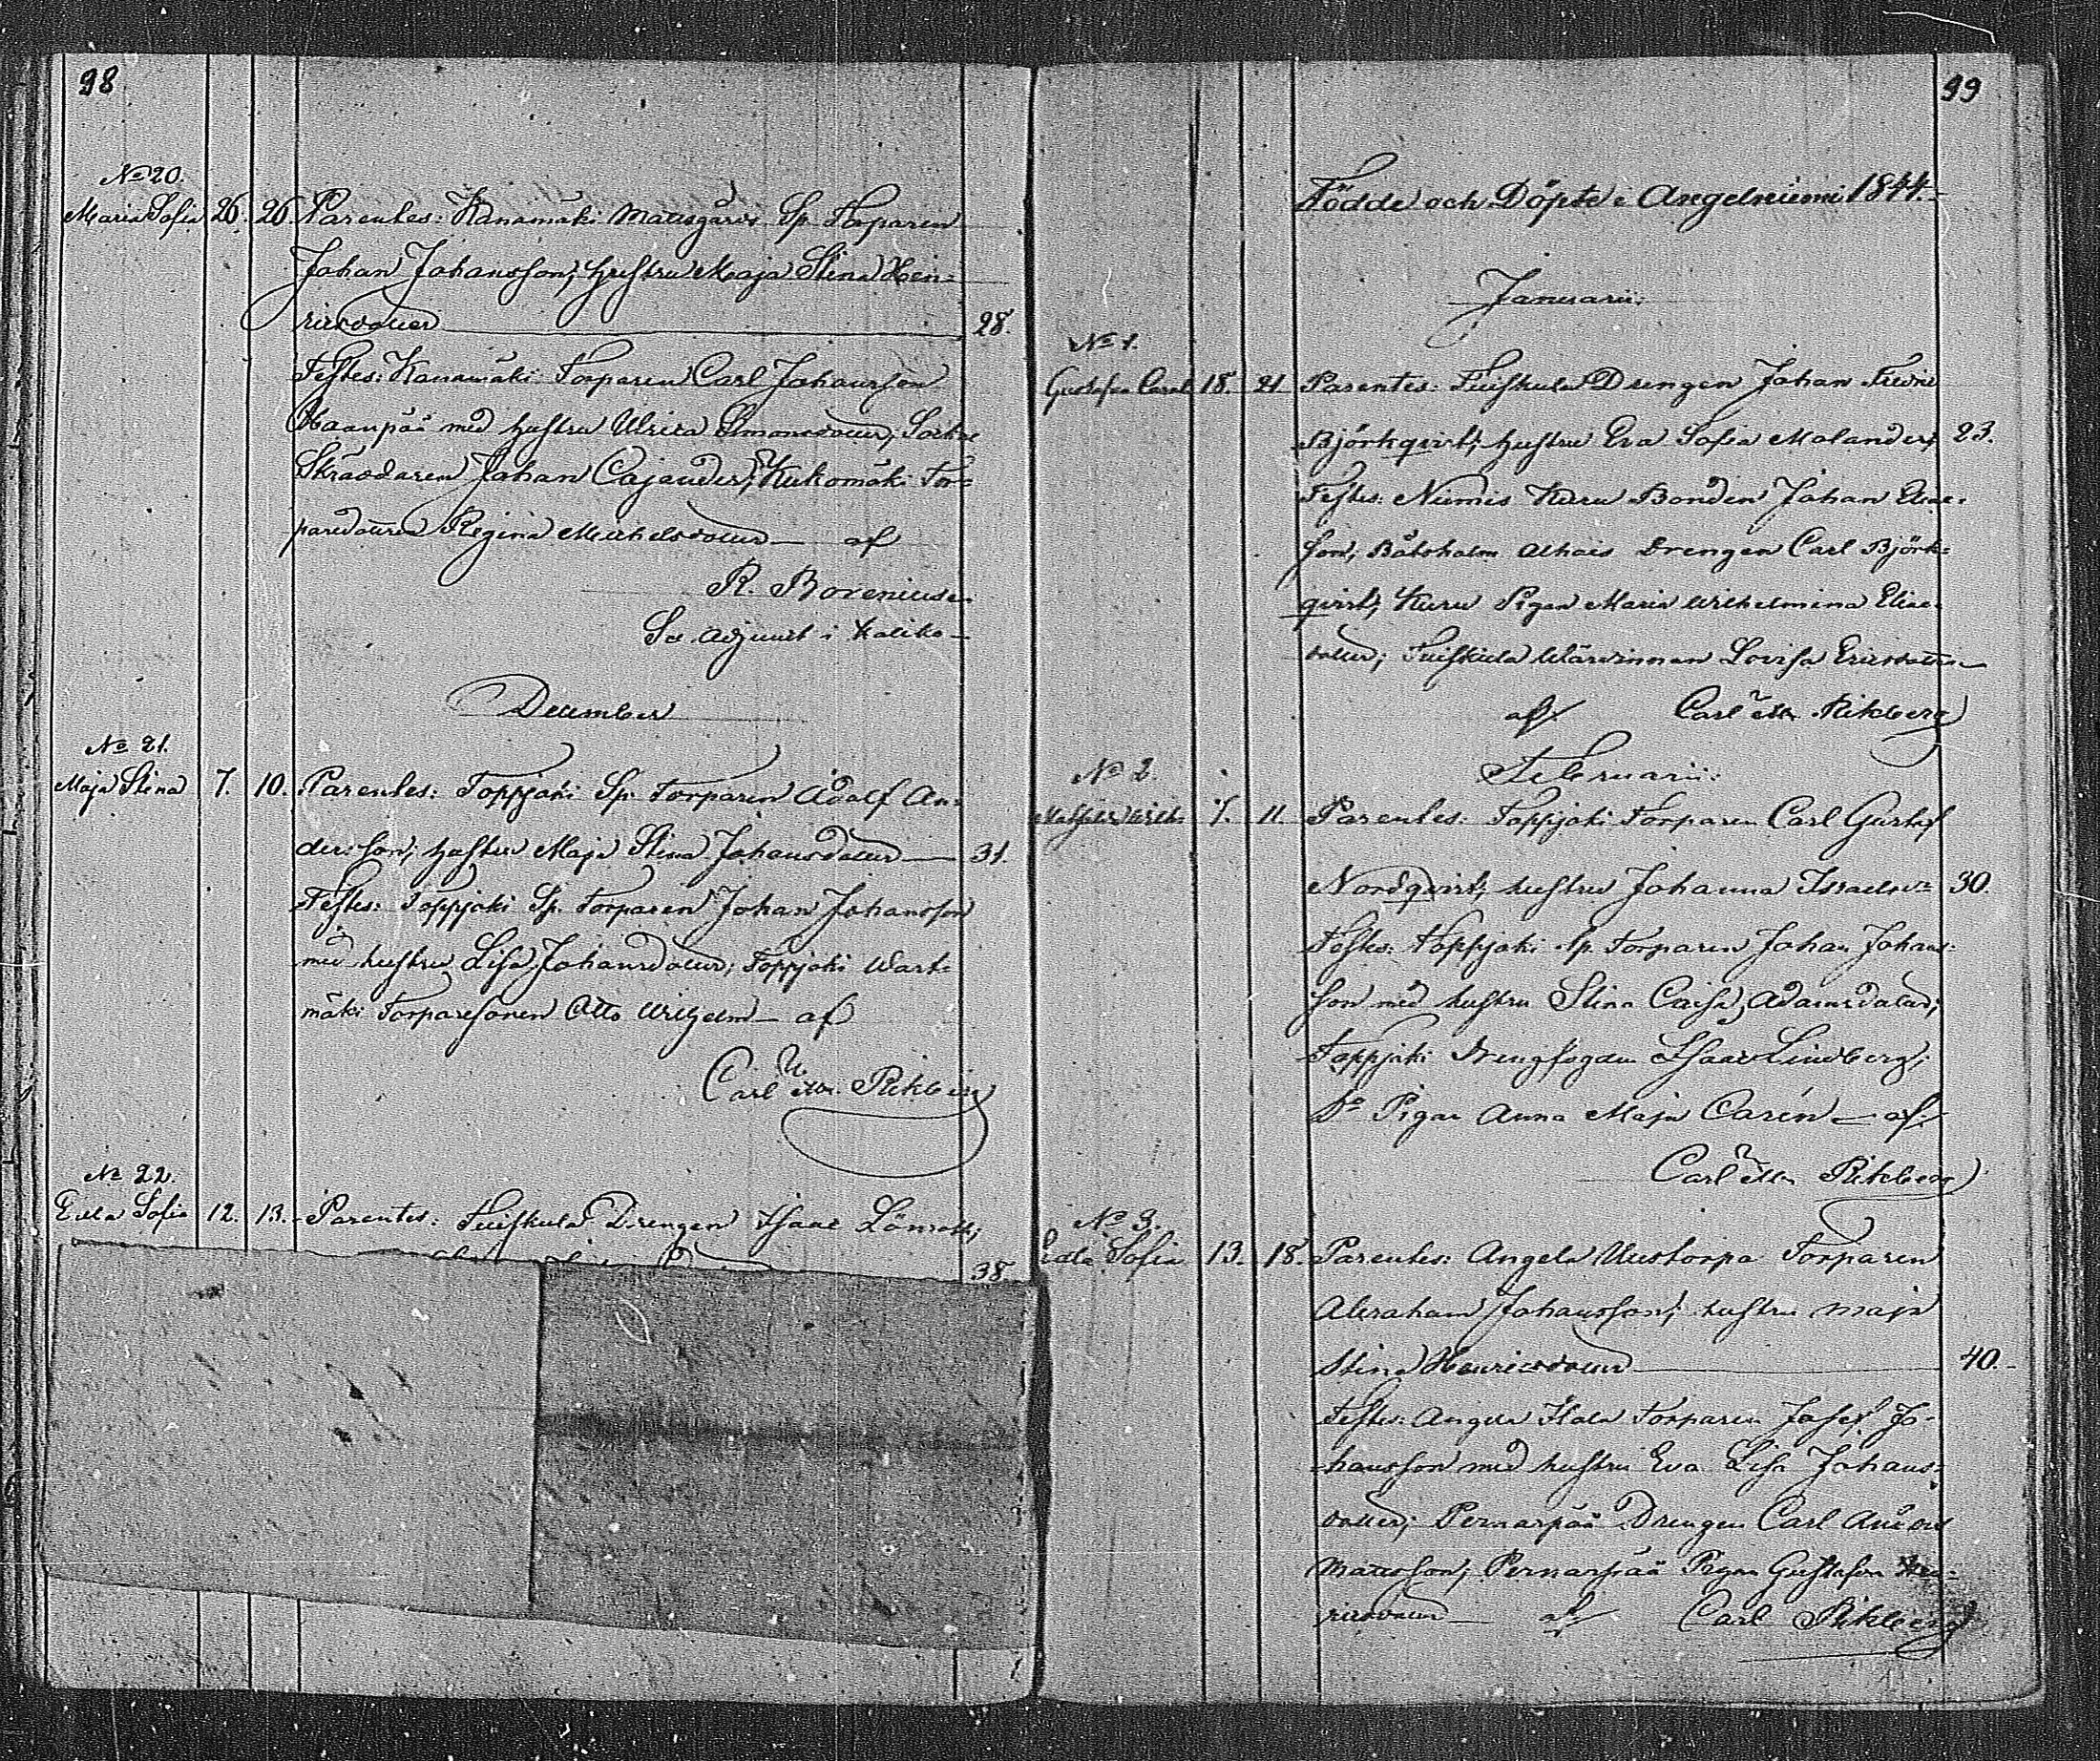 98
No 20.
Maria Sofia 26. 26. Parentes: Kanamäki Mattsgårds Sp. Torparen
Johan Johansson, hustru Maja Stina Hen=
ricsdotter 28.
Testes: Kanamäki Torparen Carl Johansson
Haanpää med hustru Ulrica Simonsdotter, Sockne
Skräddaren Johan Cajander, Kukomäki Tor=
paredottren Regina Michelsdotter af
R. Borenius
Sv. Adjunct i Haliko
December
No 21.
Maja Stina 7. 10. Parentes: Toppjoki Sp. Torparen Adolf An=
dersson; hustru Maja Stina Johansdotter 31.
Testes: Toppjoki Sp. Torparen Johan Johansson
med hustru Lisa Johansdotter; Toppjoki Wart=
mäki Torparesonen Otto Wilhelm af
Carl Rikberg
No 22.
Edla Sofia 12. 13. Parentes: Tuiskula Drengen Isaac Lönroth;
38.
99
Födde och Döpte i Angelniemi 1844.
Januarii.
No 1.
Gustafva Carol. 18. 21 Parentes: Tuiskula Drengen Johan Fredric
Björkqvist; hustru Eva Sofia Malander; 23.
Testes: Nummis Kuru Bonden Johan Elias=
son, Båtsholm Drengen Carl Björk=
qvist; Kuru Pigan Maria Wilhelmina Elias=
dotter; Tuiskula Wärdinnan Lovisa Ericsdotter
af Carl Rikberg
Februarii.
No 2.
Mathilda Wilh. 7. 11. Parentes: Toppjoki Torparen Carl Gustaf
Nordqvist; hustru Johanna Israelsdr 30.
Testes: Toppjoki Sp. Torparen Johan Johans=
son med hustru Stina Caisa Adamsdotter;
Toppjoki Drengfogden Isaac Lindberg;
Do Pigan Anna Maja Carén af
Carl Rikberg
No 3.
Edla Sofia 13. 18. Parentes: Angela Uustorpa Torparen
Abraham Johansson; hustru Maja
Stina Henricsdotter 40.
Testes: Angela Torparen Josef Jo=
hansson med hustru Eva Lisa Johans=
dotter; Pernarpää Drengen Carl Anton
Mattsson; Pernarpää Pigan Gustafva Hen=
ricsdotter af Carl Rikberg